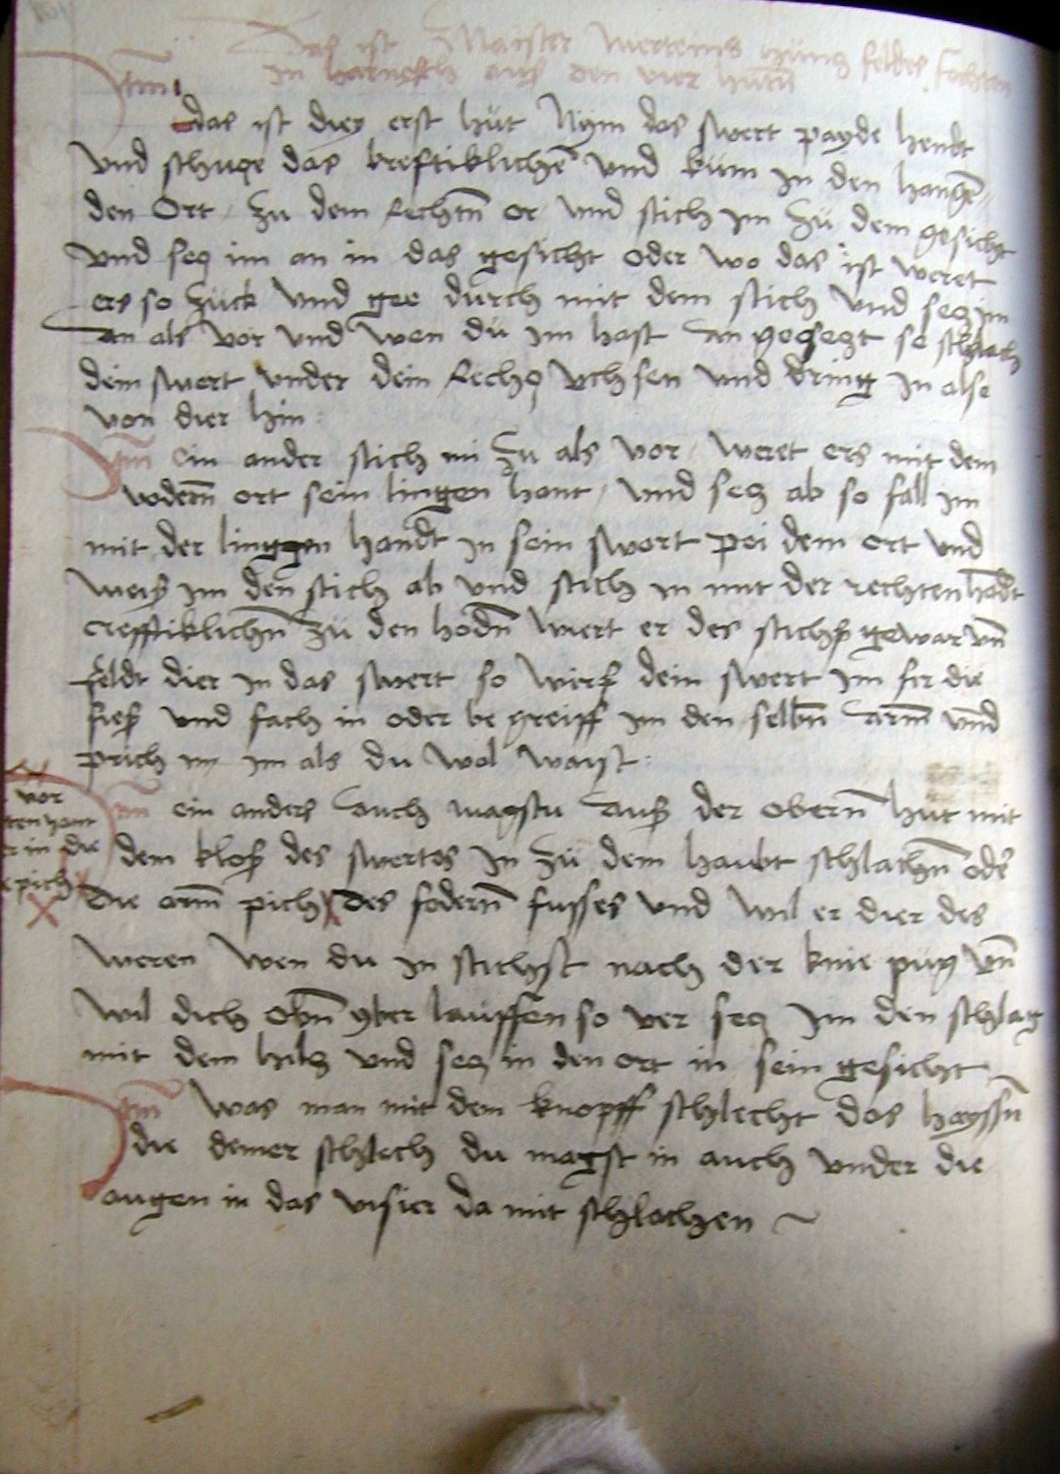 Das ist Maister merteins hüntz feldes Fechten
in harnesch aus den vier hutñ
Itm
das ist diey erst hüt Nÿm das swert payde hendt
Vnd schuge das krefftiklichē vnd kum in den hangē
den Ort zu dem Rechtñ or vnd stich im zü dem gesicht
vnd secz im an in das gesicht oder wo das ist weret
ers so zück vnd gee durch mit dem stich vnd secz im
an als vor vnd wen dü im hast an gesetzt so schlach
dein swert vnder dein Rechcz vchsen vnd dring in also
von dier hin
Itm ein ander stich im zu als vor weret ers mit dem
vodern̄ ort sein lingen hant / vnd secz ab so fall im
mit der linggen handt in sein swert pei dem ort vnd
weis im den stich ab vnd stich in mit der rechten hādt
crefftiklichn̄ zü den hodn̄ wiert er des stichs gewar vn̄
feldt dier in das swert so wirf dein swert im fer die
fies vnd fach in oder begreiff im den selbn̄ arm̄ vnd
prich in im als du wol waist :
Itm ein anders auch magstu aus der obern̄ hut mit
dem klos des swertes in zü dem haubt schlachn̄ oder
vor
die
X
die arm̄ pich X des fodern̄ fusses vnd wil er dier des
weren wen du in stichst nach der knie püg vn̄
wil dich obn̄ yber lauffen so ver secz im den schlag
mit dem hilcz vnd secz in den ort in sein gesicht
Itm was man mit dem knopff schlecht das hayssn̄
die demer schlech du magst in auch vnder die
augen in das visier da mit schlachen ~